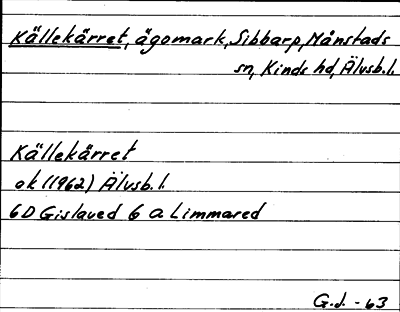 Källekärret, ägomark, Sibbarp, Månstads
sn, Kinds hd, Älvsb. l.
Källekärret
ek (1962) Älvsb. l.
6D Gislaved 6 a Limmared
G.J. - 63